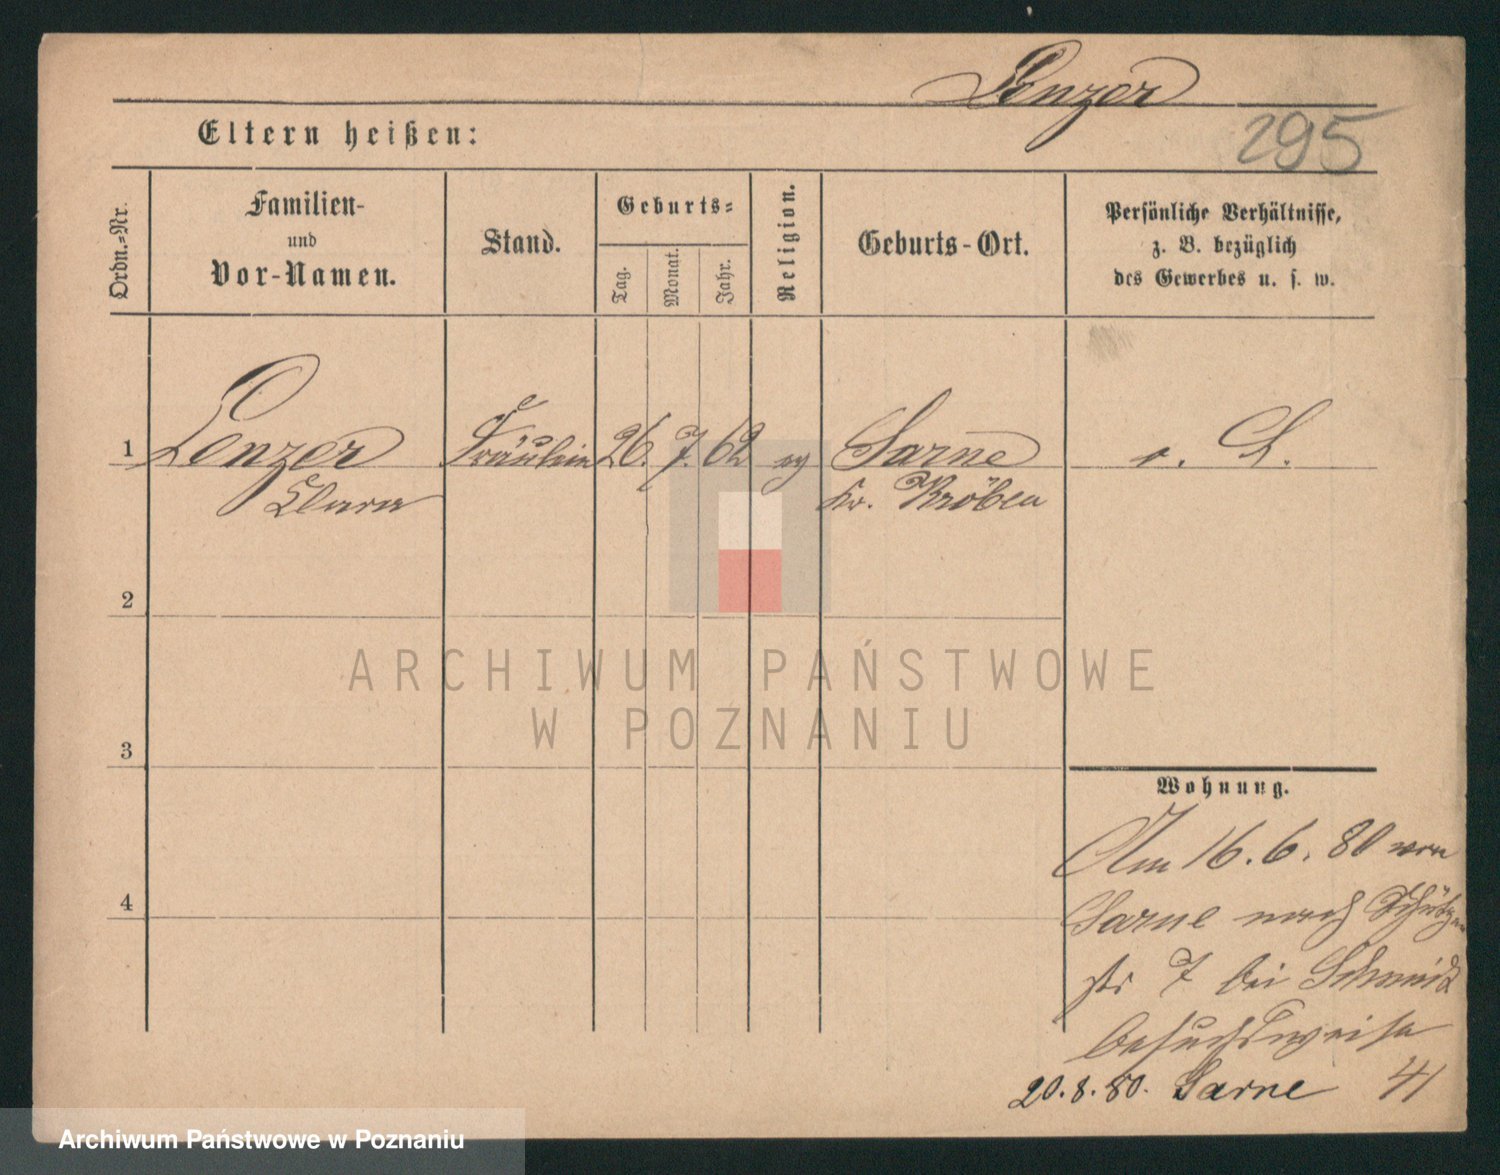 Lenzer
295
Eltern heißen:
Ordn.-Nr.
Familien-
und
Vor-Namen.
Stand.
Geburts-
Tag.
Monat.
Jahr.
Religion.
Geburts-Ort.
Persönliche Verhältnisse,
z. B. bezüglich
des Gewerbes u. s. w.
1 Lenzer Fräulein 26. 7. 62 ev Sarne
Clara Kr. Kröben
2
3
4
Wohnung.
Am 16. 6. 80 von
Sarne nach Schützen
str 7 bei Schmidt
besuchsweise
20. 8. 80. Sarne 41
ARCHIWUM PAŃSTWOWE
W POZNANIU
Archiwum Państwowe w Poznaniu